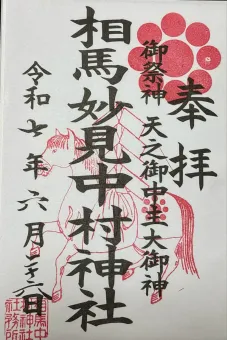 奉拝
御祭神 天之御中主大御神
相馬妙見中村神社
令和七年六月二十六日
相馬中
村神社
社務所